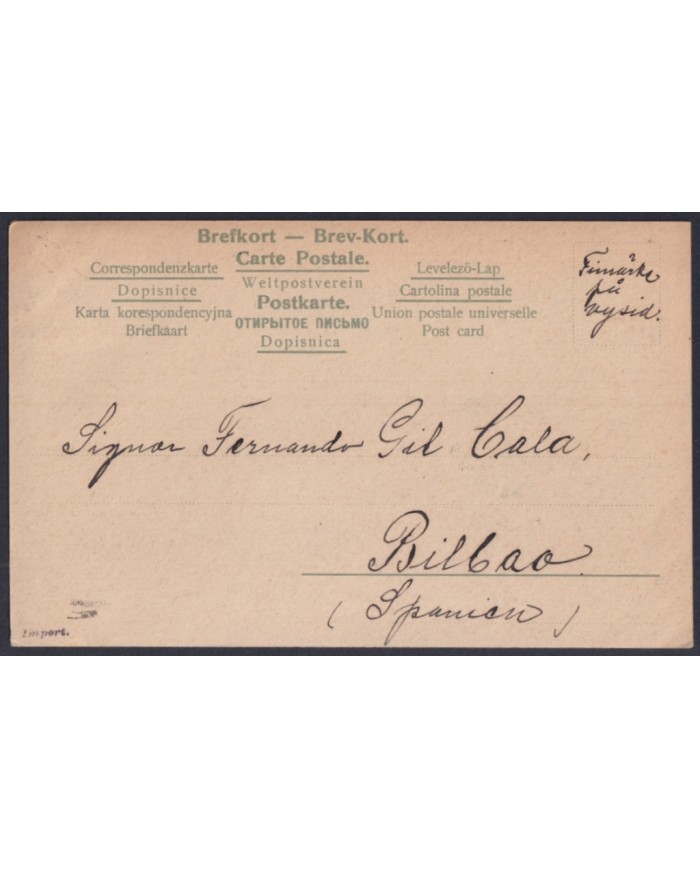 Brefkort — Brev-Kort.
Carte Postale.
Correspondenzkarte
Weltpostverein
Levelezö-Lap
Dopisnice
Postkarte.
Cartolina postale
Karta korespondencyjna
ОТКРЫТОЕ ПИСЬМО
Union postale universelle
Briefkaart
Dopisnica
Post card
Fimärke
på
vysid.
Signor Fernando Gil Cala,
Bilbao.
(Spanien)
Import.